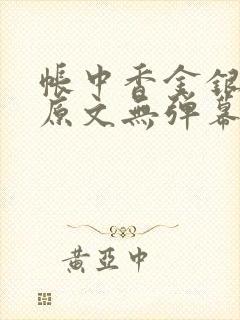 帳中香金銀
原文無彈幕
黃亞中